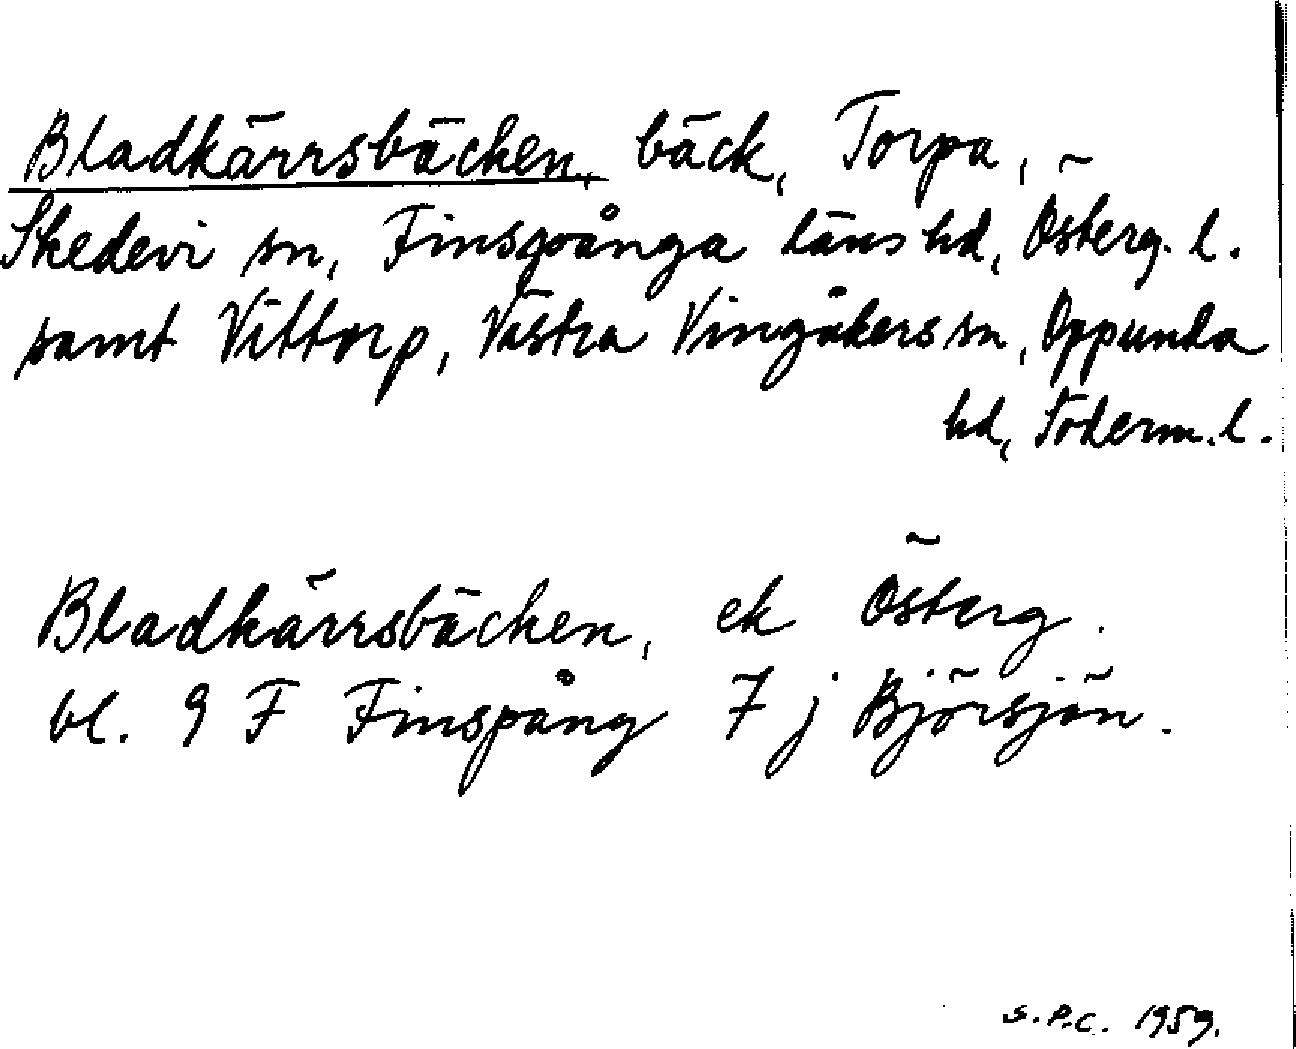 Bladkärrsbäcken, bäck, Torpa,
Skedevi sn, Finspånga läns hd, Österg. l.
samt Vittorp, Västra Vingåkers sn, Oppunda
hd, Söderm. l.
Bladkärrsbäcken, ek Österg.
bl. 9 F Finspång 7 j Björsjön.
S.P.C. 1959.